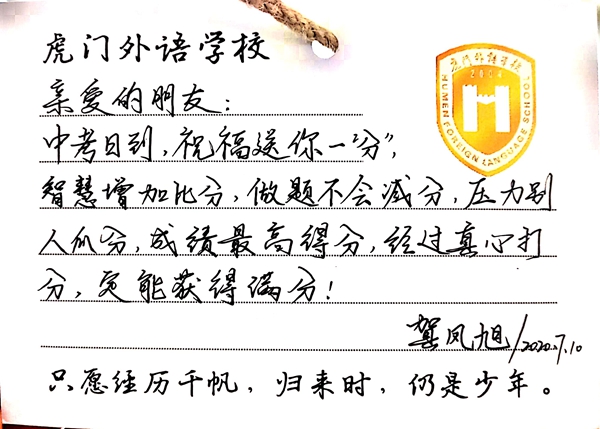 虎门外语学校
亲爱的朋友：
中考日到，祝福送你一“分”，
智慧增加比分，做题不会减分，压力别
人瓜分，成绩最高得分，经过真心打
分，定能获得满分！
龚凤旭/2020.7.10
只愿经历千帆，归来时，仍是少年。
虎门外语学校
2004
HUMEN FOREIGN LANGUAGE SCHOOL